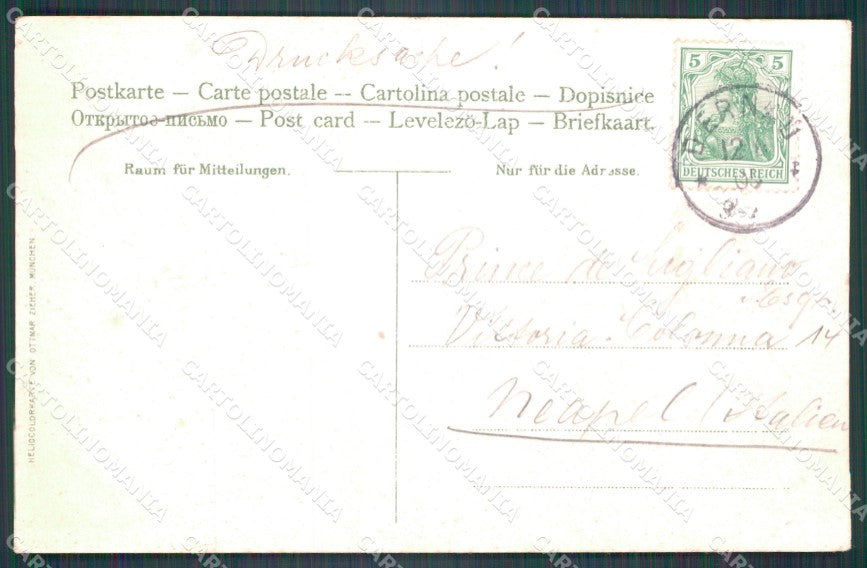 Drucksache!
Postkarte — Carte postale -- Cartolina postale — Dopisnice
Открытое-письмо — Post card — Levelező-Lap — Briefkaart.
Raum für Mitteilungen.
Nur für die Adresse.
5 5
DEUTSCHES REICH
BERNAU
12
Prince de
Esq.
Vittoria Colonna 14
Neapel (Italien
HELIOCOLORKARTE VON OTTMAR ZIEHER, MÜNCHEN
CARTOLINOMANIA